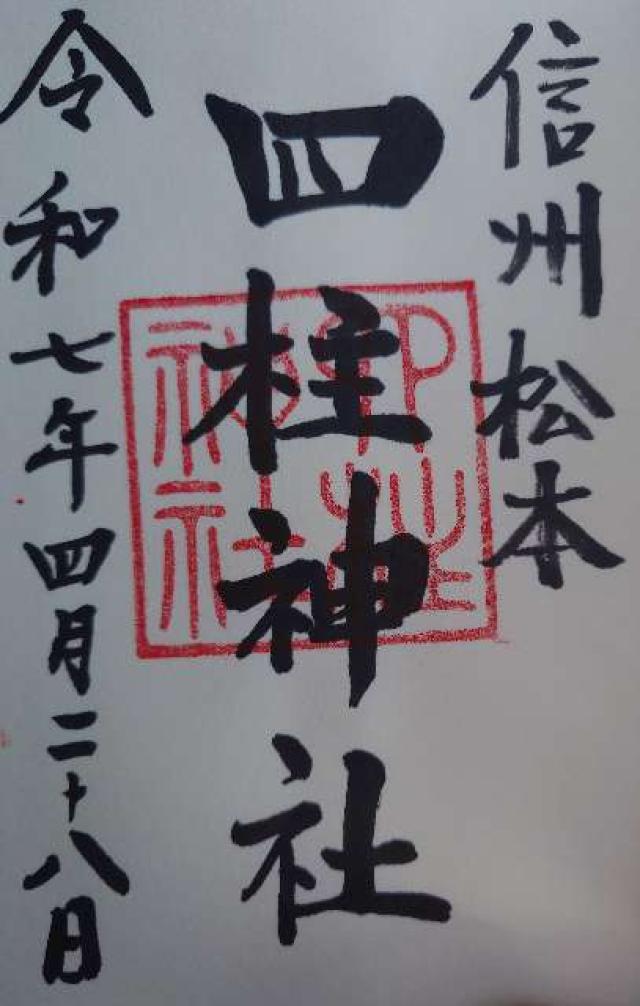 信州松本
四柱神社
令和七年四月二十八日